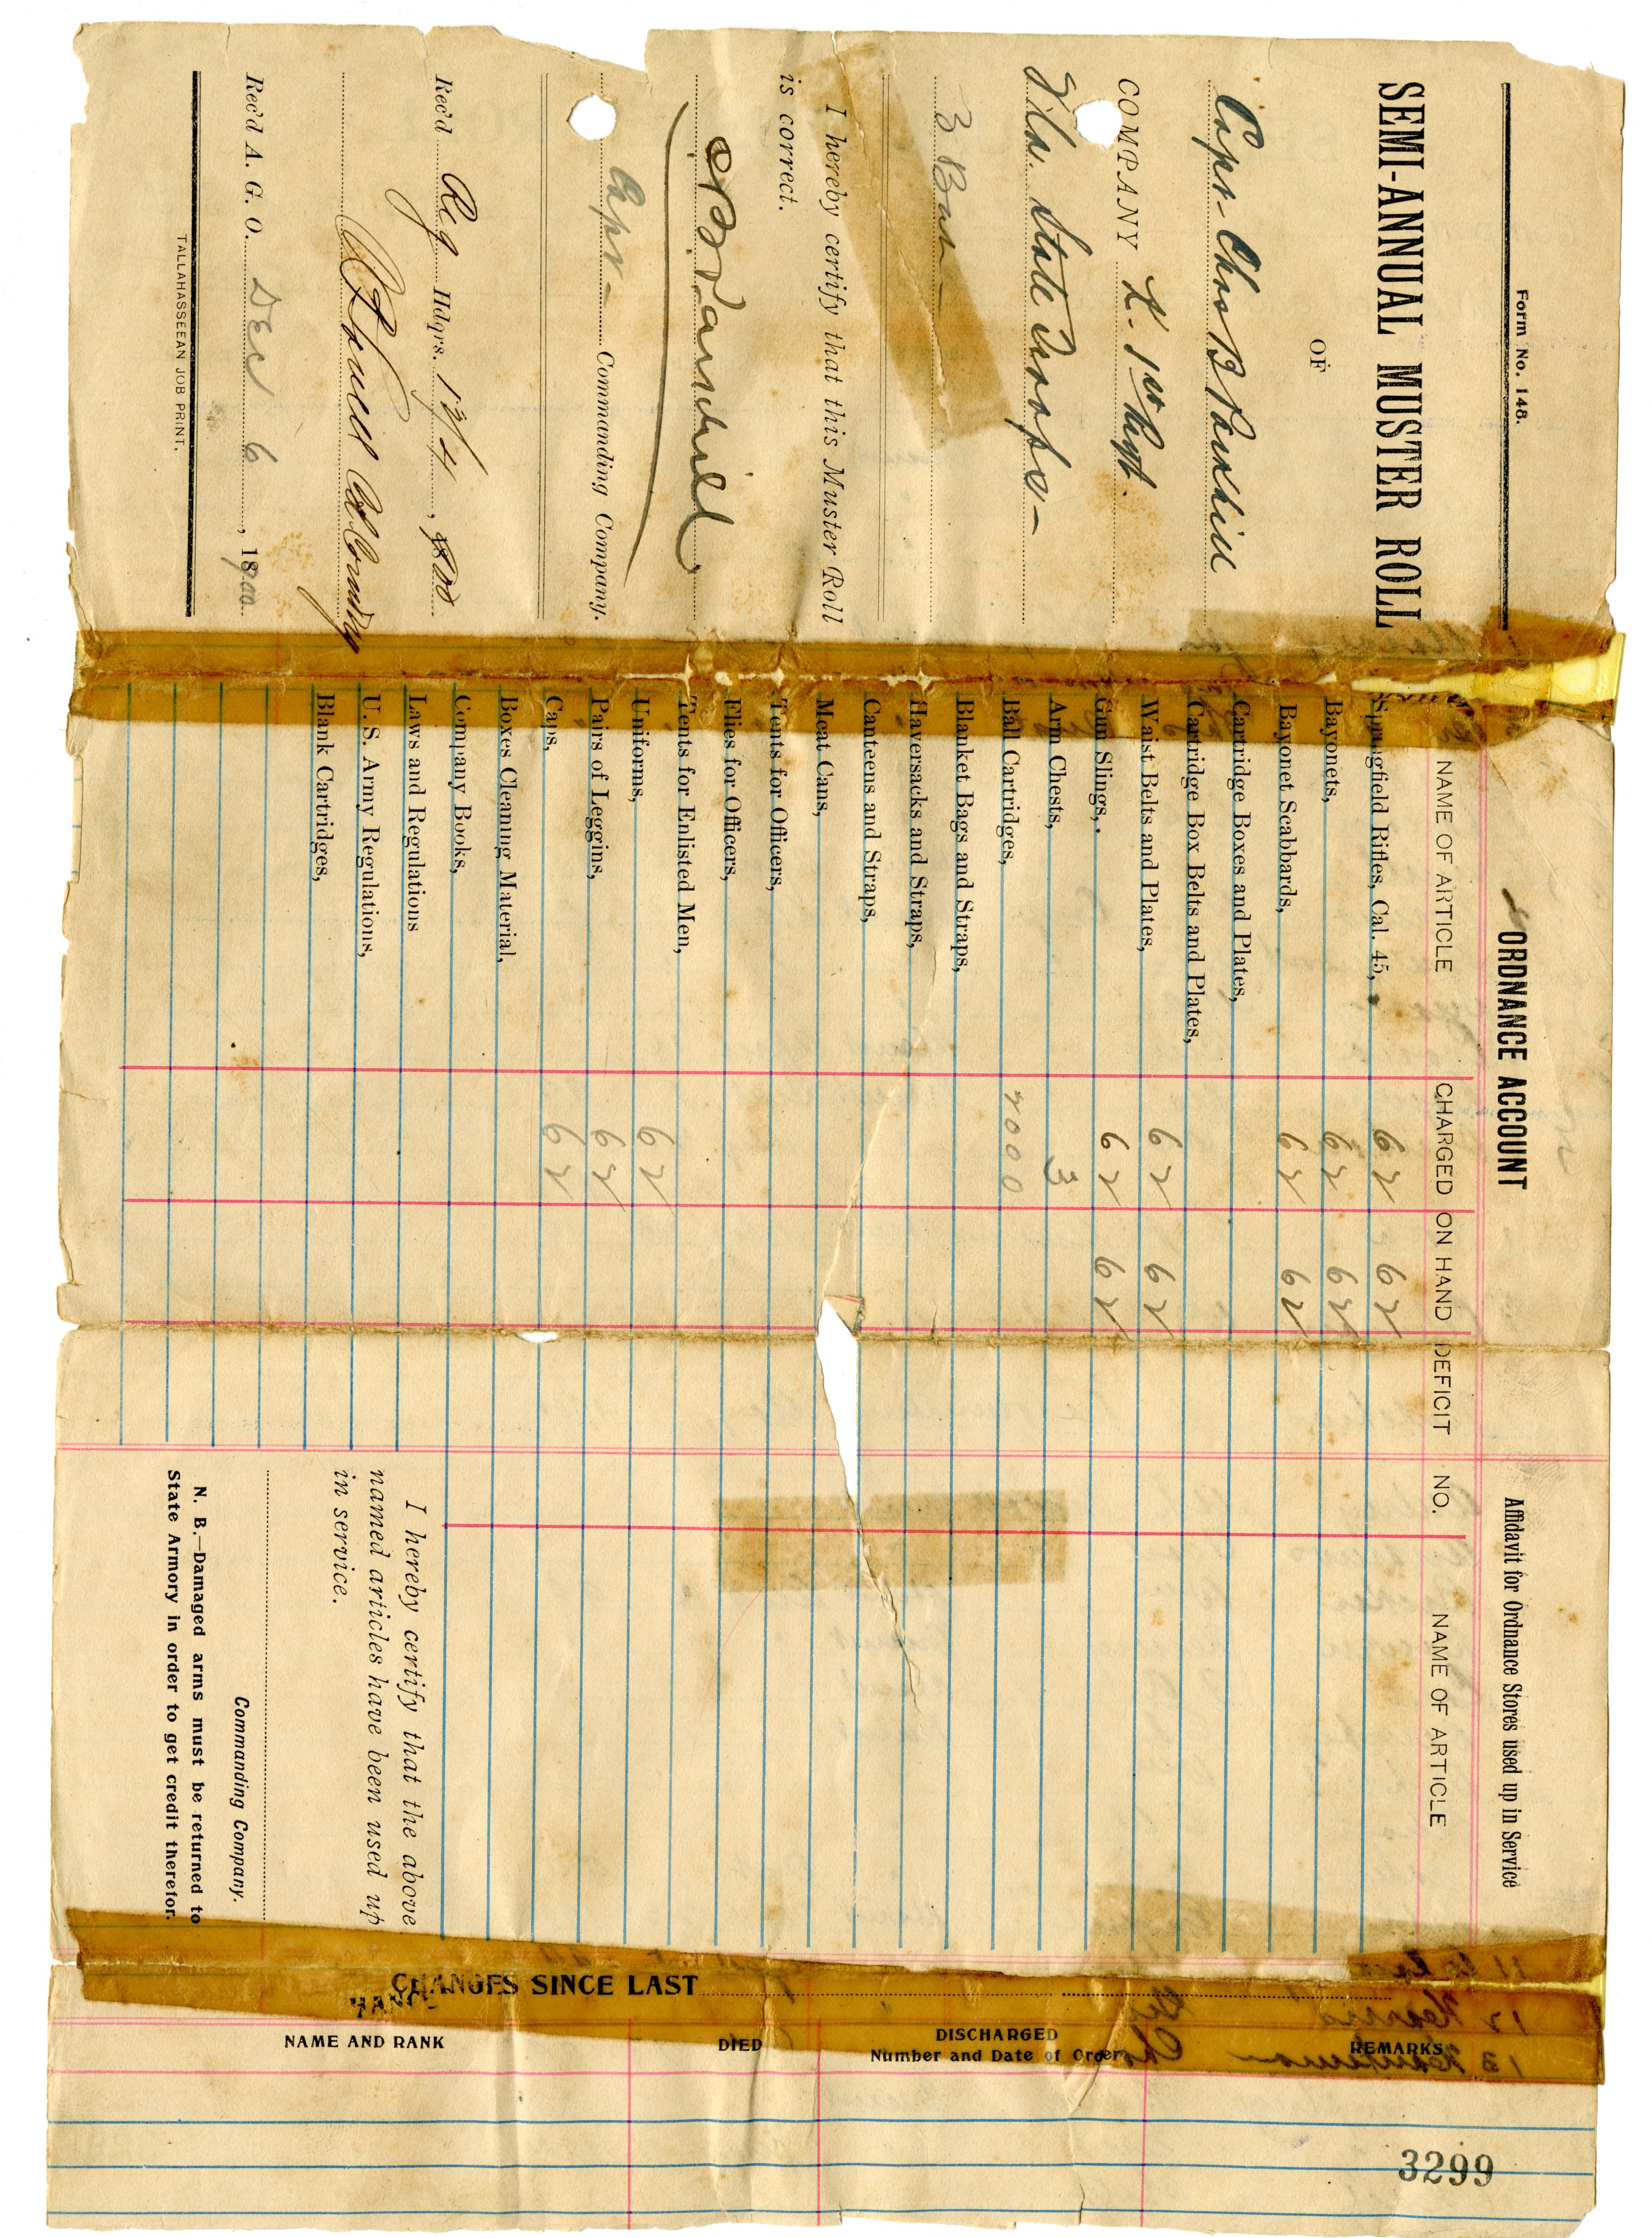 Form No. 148.
SEMI-ANNUAL MUSTER ROLL
OF
Capt. Chas B Parkhill
COMPANY L. 1st Regt.
Fla. State Troops
3 Bat
I hereby certify that this Muster Roll
is correct.
CB Parkhill
Capt Commanding Company.
Rec'd Reg Hdqrs. 12/4, 1900
Rec'd A. G. O. Dec 6, 1900
TALLAHASSEEAN JOB PRINT.
ORDNANCE ACCOUNT
NAME OF ARTICLE CHARGED ON HAND DEFICIT
Springfield Rifles, Cal. 45, 62 62
Bayonets, 62 62
Bayonet Scabbards, 62 62
Cartridge Boxes and Plates,
Cartridge Box Belts and Plates,
Waist Belts and Plates, 62 62
Gun Slings, 62 62
Arm Chests, 3
Ball Cartridges, 2000
Blanket Bags and Straps,
Haversacks and Straps,
Canteens and Straps,
Meat Cans,
Tents for Officers,
Flies for Officers,
Tents for Enlisted Men,
Uniforms, 62
Pairs of Leggins, 62
Caps, 62
Boxes Cleaning Material,
Company Books,
Laws and Regulations
U.S. Army Regulations,
Blank Cartridges,
Affidavit for Ordnance Stores used up in Service
NO. NAME OF ARTICLE
I hereby certify that the above
named articles have been used up
in service.
Commanding Company.
N. B.—Damaged arms must be returned to
State Armory in order to get credit therefor.
CHANGES SINCE LAST
NAME AND RANK DIED DISCHARGED REMARKS
Number and Date of Order
3299